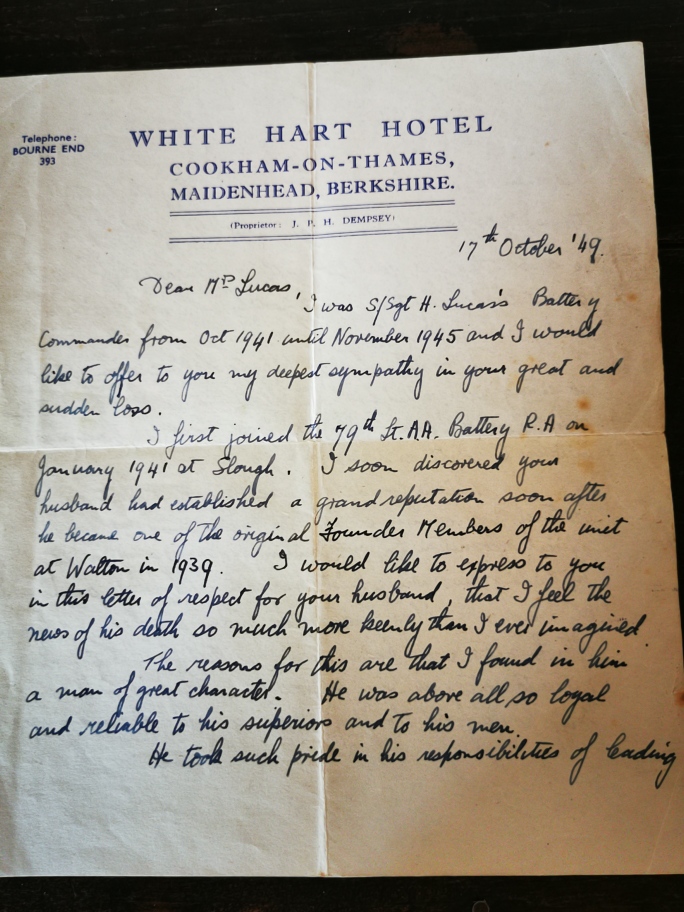 Telephone:
BOURNE END
393
WHITE HART HOTEL
COOKHAM-ON-THAMES,
MAIDENHEAD, BERKSHIRE.
(Proprietor: J. P. H. DEMPSEY)
17th October '49.
Dear Mrs Lucas,
I was S/Sgt H. Lucas's Battery
Commander from Oct 1941 until November 1945 and I would
like to offer to you my deepest sympathy in your great and
sudden loss.
I first joined the 79th Lt.AA. Battery R.A on
January 1941 at Slough. I soon discovered your
husband had established a grand reputation soon after
he became one of the original Founder Members of the unit
at Walton in 1939. I would like to express to you
in this letter of respect for your husband, that I feel the
news of his death so much more keenly than I ever imagined.
The reasons for this are that I found in him
a man of great character. He was above all so loyal
and reliable to his superiors and to his men.
He took such pride in his responsibilities of leading